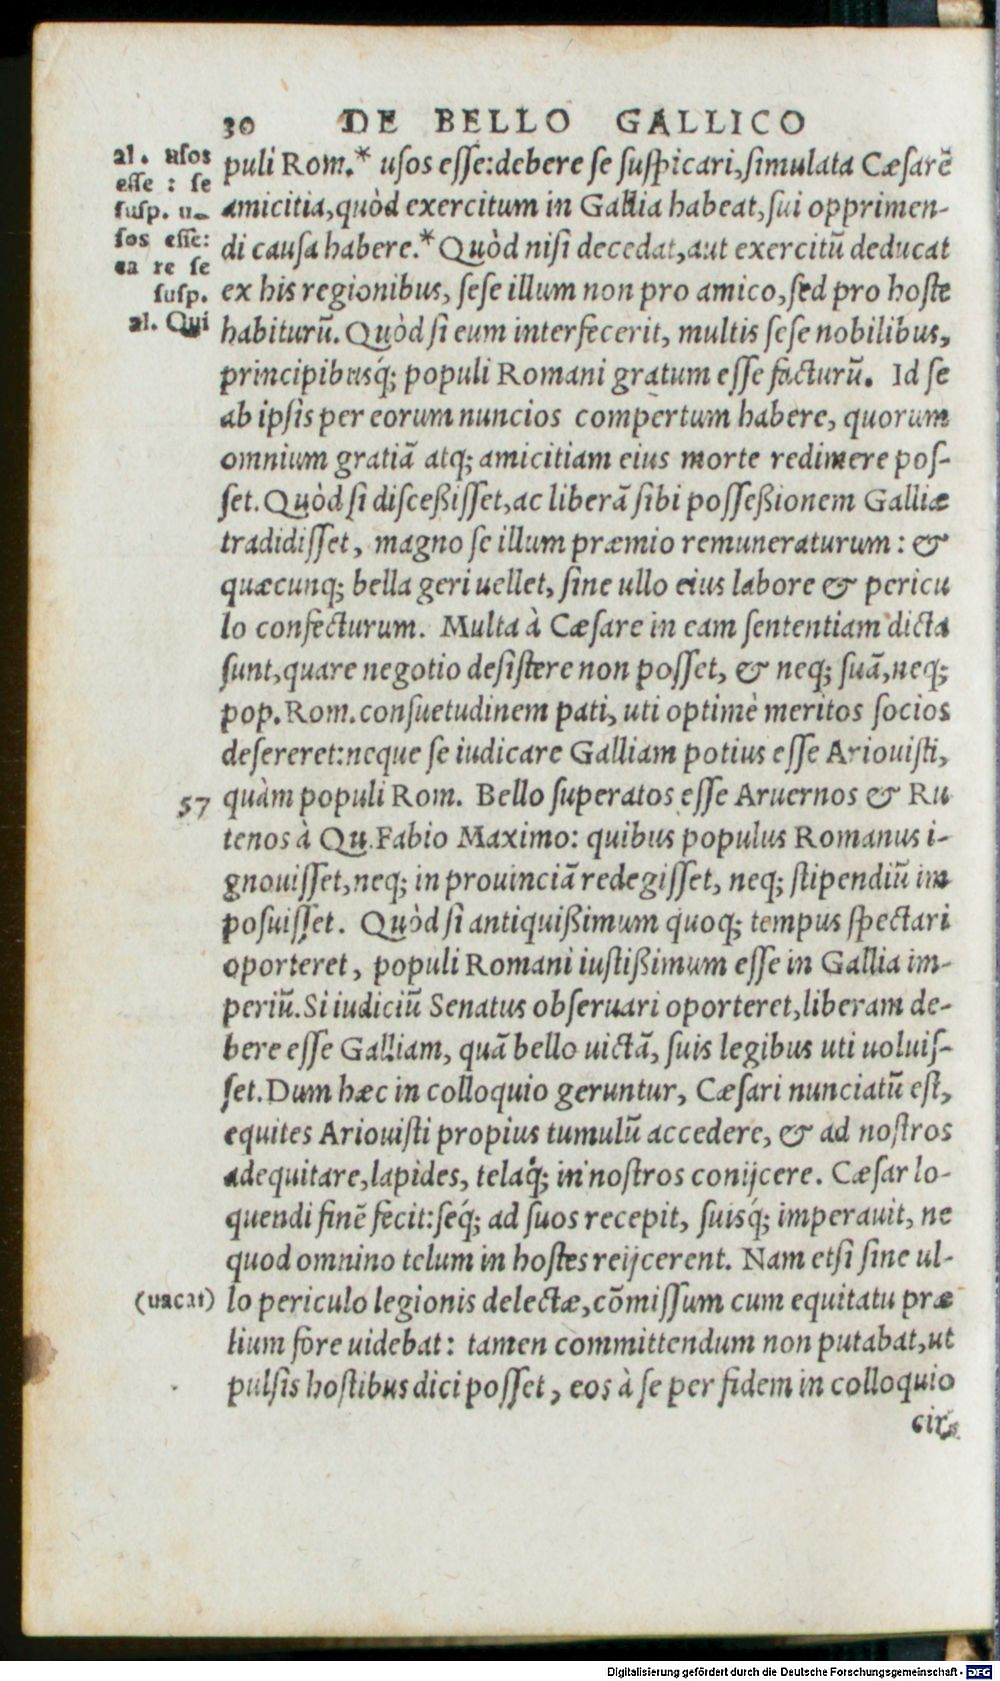 30 DE BELLO GALLICO
al. usos
esse : se
susp. u-
sos esse:
ea re se
susp.
al. Qui
puli Rom.* usos esse:debere se suspicari,simulata Cæsarẽ
amicitia,quòd exercitum in Gallia habeat,sui opprimen-
di causa habere.* Quòd nisi decedat,aut exercitũ deducat
ex his regionibus, sese illum non pro amico,sed pro hoste
habiturũ. Quòd si eum interfecerit, multis sese nobilibus,
principibusq́; populi Romani gratum esse facturũ. Id se
ab ipsis per eorum nuncios compertum habere, quorum
omnium gratiã atq; amicitiam eius morte redimere pos-
set. Quòd si disceßisset,ac liberã sibi posseßionem Galliæ
tradidisset, magno se illum præmio remuneraturum : &
quæcunq; bella geri uellet, sine ullo eius labore & pericu
lo confecturum. Multa à Cæsare in eam sententiam dicta
sunt,quare negotio desistere non posset, & neq; suã,neq;
pop. Rom. consuetudinem pati, uti optimè meritos socios
desereret:neque se iudicare Galliam potius esse Ariouisti,
57 quàm populi Rom. Bello superatos esse Aruernos & Ru
tenos à Qu. Fabio Maximo: quibus populus Romanus i-
gnouisset,neq; in prouinciã redegisset, neq; stipendiũ im
posuisset. Quòd si antiquißimum quoq; tempus spectari
oporteret, populi Romani iustißimum esse in Gallia im-
periũ. Si iudiciũ Senatus obseruari oporteret,liberam de-
bere esse Galliam, quã bello uictã, suis legibus uti uoluis-
set. Dum hæc in colloquio geruntur, Cæsari nunciatũ est,
equites Ariouisti propius tumulũ accedere, & ad nostros
adequitare,lapides, telaq́; in nostros conijcere. Cæsar lo-
quendi finẽ fecit:seq́; ad suos recepit, suisq́; imperauit, ne
quod omnino telum in hostes reijcerent. Nam etsi sine ul-
(uacat) lo periculo legionis delectæ,cõmissum cum equitatu præ
lium fore uidebat: tamen committendum non putabat,ut
pulsis hostibus dici posset, eos à se per fidem in colloquio
cir-
Digitalisierung gefördert durch die Deutsche Forschungsgemeinschaft - DFG